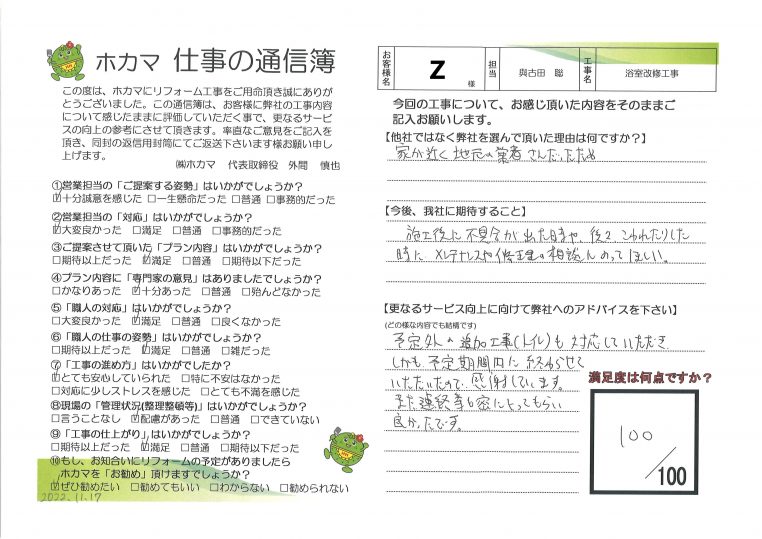 ホカマ 仕事の通信簿
この度は、ホカマにリフォーム工事をご用命頂き誠にありが
とうございました。この通信簿は、お客様に弊社の工事内容
について感じたままに評価していただく事で、更なるサービ
スの向上の参考にさせて頂きます。率直なご意見をご記入を
頂き、同封の返信用封筒にてご返送下さいます様お願い申し
上げます。
㈱ホカマ 代表取締役 外間 慎也
①営業担当の「ご提案する姿勢」はいかがでしょうか?
☑十分誠意を感じた □一生懸命だった □普通 □事務的だった
②営業担当の「対応」はいかがでしょうか?
☑大変良かった □満足 □普通 □事務的だった
③ご提案させて頂いた「プラン内容」はいかがでしょうか?
□期待以上だった ☑満足 □普通 □期待以下だった
④プラン内容に「専門家の意見」はありましたでしょうか?
□かなりあった ☑十分あった □普通 □殆んどなかった
⑤「職人の対応」はいかがでしょうか?
□大変良かった ☑満足 □普通 □良くなかった
⑥「職人の仕事の姿勢」はいかがでしょうか?
□期待以上だった ☑満足 □普通 □雑だった
⑦「工事の進め方」はいかがでしたか?
☑とても安心していられた □特に不安はなかった
□対応に少しストレスを感じた □とても不満を感じた
⑧現場の「管理状況(整理整頓等)」はいかがでしょうか?
□言うことなし ☑配慮があった □普通 □できていない
⑨「工事の仕上がり」はいかがでしょうか?
□期待以上だった ☑満足 □普通 □期待以下だった
⑩もし、お知合いにリフォームの予定がありましたら
ホカマを「お勧め」頂けますでしょうか?
☑ぜひ勧めたい □勧めてもいい □わからない □勧められない
2022.11.17
お客様名 Z 様 担当 與古田 聡 工事名 浴室改修工事
今回の工事について、お感じ頂いた内容をそのままご
記入お願いします。
【他社ではなく弊社を選んで頂いた理由は何ですか?】
家が近く地元の業者さんだったため
【今後、我社に期待すること】
施工後に不具合が出た時や、後々こわれたりした
時に メンテナンスや修理の相談にのってほしい。
【更なるサービス向上に向けて弊社へのアドバイスを下さい】
(どの様な内容でも結構です)
予定外の追加工事(トイレ)も対応していただき
しかも予定期間内に終わらせて
いただいたので、感謝しています。
また連絡等も密にとってもらい
良かったです。
満足度は何点ですか?
100
/100